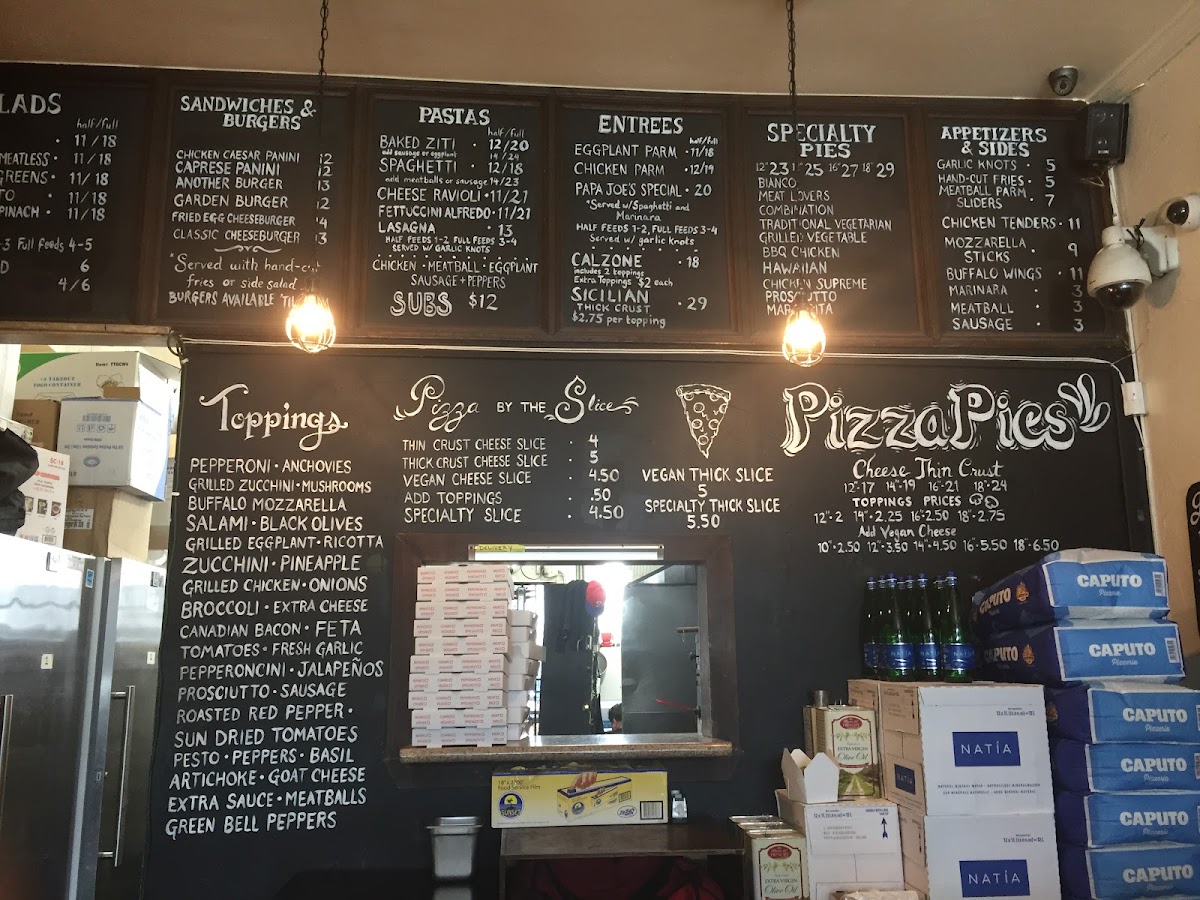 LADS
half/full
11 / 18
MEATLESS · 11 / 18
GREENS · 11 / 18
TO · 11 / 18
PINACH · 11 / 18
-3 Full feeds 4-5
D 6
4/6
SANDWICHES &
BURGERS
CHICKEN CAESAR PANINI 12
CAPRESE PANINI 12
ANOTHER BURGER 13
GARDEN BURGER 12
FRIED EGG CHEESEBURGER
CLASSIC CHEESEBURGER 13
*Served with hand-cut
fries or side salad
BURGERS AVAILABLE 'TIL
PASTAS
half/full
BAKED ZITI · 12/20
add sausage or eggplant 14/24
SPAGHETTI · 12/18
add meatballs or sausage 14/23
CHEESE RAVIOLI · 11/21
FETTUCCINI ALFREDO · 11/21
LASAGNA · 13
HALF FEEDS 1-2, FULL FEEDS 3-4
SERVED W/ GARLIC KNOTS
CHICKEN · MEATBALL · EGGPLANT
SAUSAGE + PEPPERS
SUBS $12
ENTREES
half/full
EGGPLANT PARM · 11/18
CHICKEN PARM · 12/19
PAPA JOE'S SPECIAL · 20
*Served w/Spaghetti and
Marinara
HALF FEEDS 1-2, FULL FEEDS 3-4
Served w/ garlic knots
CALZONE · 18
includes 2 toppings
Extra Toppings $2 each
SICILIAN · 29
THICK CRUST
$2.75 per topping
SPECIALTY
PIES
12" 23 14" 25 16" 27 18" 29
BIANCO
MEAT LOVERS
COMBINATION
TRADITIONAL VEGETARIAN
GRILLED VEGETABLE
BBQ CHICKEN
HAWAIIAN
CHICKEN SUPREME
PROSCIUTTO
MARGARITA
APPETIZERS
& SIDES
GARLIC KNOTS · 5
HAND-CUT FRIES · 5
MEATBALL PARM
SLIDERS · 7
CHICKEN TENDERS · 11
MOZZARELLA
STICKS · 9
BUFFALO WINGS · 11
MARINARA · 3
MEATBALL · 3
SAUSAGE · 3
Toppings
PEPPERONI · ANCHOVIES
GRILLED ZUCCHINI · MUSHROOMS
BUFFALO MOZZARELLA
SALAMI · BLACK OLIVES
GRILLED EGGPLANT · RICOTTA
ZUCCHINI · PINEAPPLE
GRILLED CHICKEN · ONIONS
BROCCOLI · EXTRA CHEESE
CANADIAN BACON · FETA
TOMATOES · FRESH GARLIC
PEPPERONCINI · JALAPEÑOS
PROSCIUTTO · SAUSAGE
ROASTED RED PEPPER ·
SUN DRIED TOMATOES
PESTO · PEPPERS · BASIL
ARTICHOKE · GOAT CHEESE
EXTRA SAUCE · MEATBALLS
GREEN BELL PEPPERS
Pizza BY THE Slice
THIN CRUST CHEESE SLICE · 4
THICK CRUST CHEESE SLICE · 5
VEGAN CHEESE SLICE · 4.50
ADD TOPPINGS · .50
SPECIALTY SLICE · 4.50
VEGAN THICK SLICE
5
SPECIALTY THICK SLICE
5.50
Pizza Pies
Cheese Thin Crust
12"-17 14"-19 16"-21 18"-24
TOPPINGS PRICES
12"-2 14"-2.25 16"-2.50 18"-2.75
Add Vegan Cheese
10"-2.50 12"-3.50 14"-4.50 16"-5.50 18"-6.50
DELIVERY
TAKEOUT
FOOD CONTAINER
Food Service Film
EXTRA VIRGIN
Olive Oil
EXTRA VIRGIN
Olive Oil
NATIA
NATIA
NATÍA
NATIA
NATÍA
CAPUTO
CAPUTO
Pizzeria
CAPUTO
CAPUTO
Pizzeria
CAPUTO
Pizzeria
CAPUTO
Pizzeria
CAPUTO
Pizzeria
CAPUTO
Pizzeria